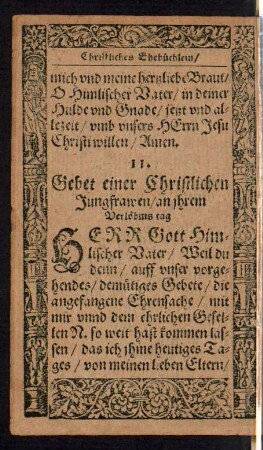 Christliches Ehebüchlein/
mich vnd meine hertzliebe Braut/
O Himlischer Vater/ in deiner
Hulde vnd Gnade/ jetzt vnd al-
lezeit/ vmb vnsers HErrn Jesu
Christi willen/ Amen.
II.
Gebet einer Christlichen
Jungfrawen/ an jhrem
Verlöbnis tag
HERR Gott Him-
lischer Vater/ Weil du
denn/ auff vnser vorge-
hendes/ demütiges Gebete/ die
angefangene Ehrensache/ mit
mir vnnd dem ehrlichen Gesel-
len N. so weit hast kommen las-
sen/ das ich jhme heutiges Ta-
ges/ von meinen lieben Eltern/